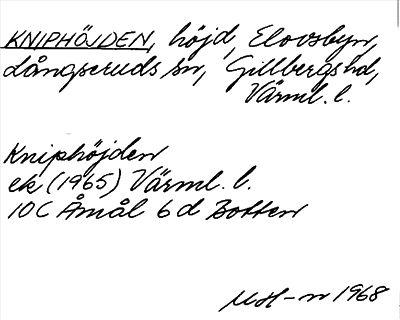 KNIPHÖJDEN, höjd, Elovsbyn,
Långseruds sn, Gillbergs hd,
Värml. l.
Kniphöjden
ek (1965) Värml. l.
10C Åmål 6d Botten
1968